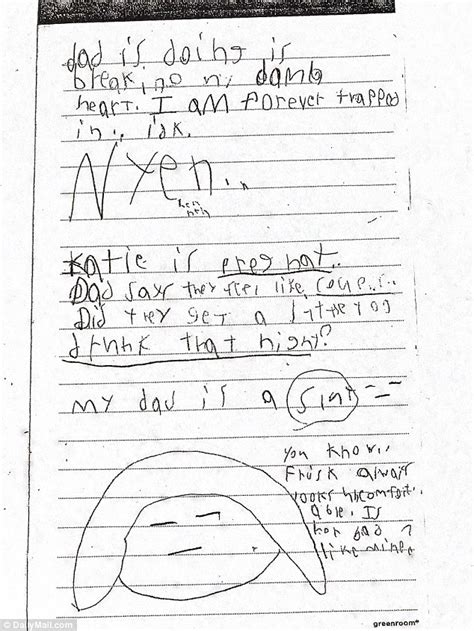 dad is doing is
breaking my damb
heart. I am forever trapped
in.. idk.
Nyen..
heh
heh
Katie is pregnat.
Dad says they feel like
Did they get a
drunk that night?
my dad is a
You know..
Frisk always
looks uncomfort.
able. Is
her dad
like mine?
© DailyMail.com
greenroom